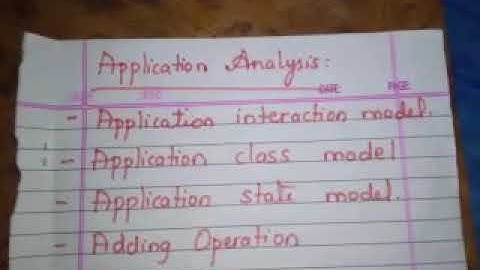 Application Analysis:
DATE PAGE
- Application interaction model.
- Application class model
- Application state model.
- Adding Operation